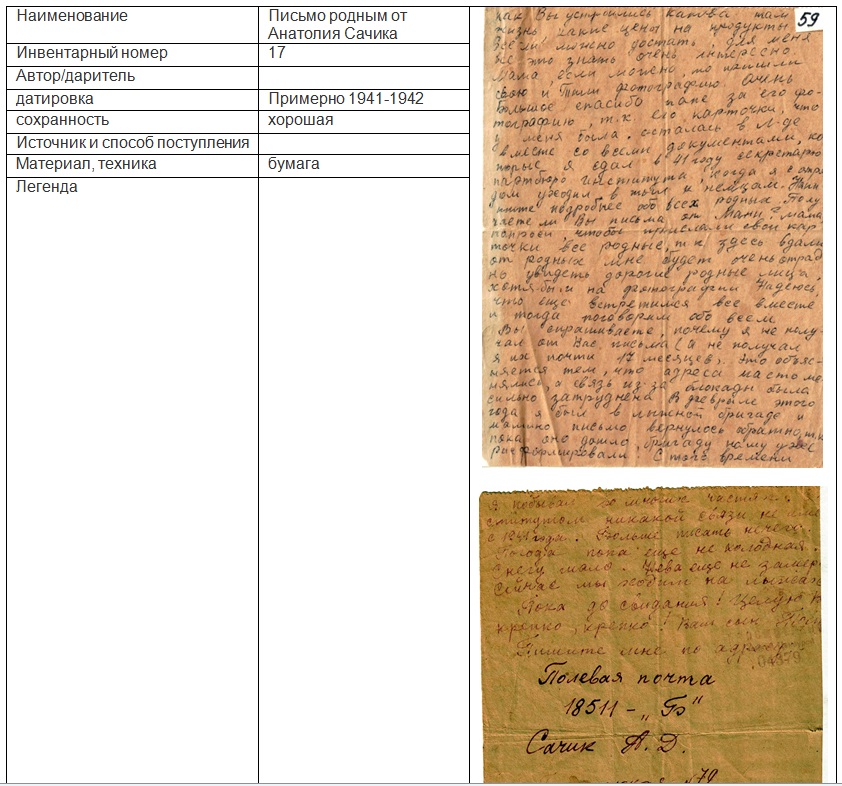 Наименование
Письмо родным от
Анатолия Сачика
Инвентарный номер
17
Автор/даритель
датировка
Примерно 1941-1942
сохранность
хорошая
Источник и способ поступления
Материал, техника
бумага
Легенда
59
как Вы устроились какова там
жизнь какие цены на продукты
Все ли можно достать, для меня
все это знать очень интересно.
Мама, если можно, то пришли
свою и фотографию. Очень
большое спасибо папе за его фо-
тографию, т.к его карточки, что
у меня была, осталась в Л-де
вместе со всеми документами, ко
торые я сдал в 41 году секретарю
партбюро института, когда я с отря
дом уходил в тыл к немцам. Напи
шите подробнее обо всех родных. Полу
чаете ли Вы письма от Мани? мама,
попроси, чтобы прислали свои кар
точки все родные, т.к здесь вдали
от родных мне будет очень отрад
но увидеть дорогие родные лица,
хотя-бы и на фотографии Надеюсь,
что еще встретимся все вместе
и тогда поговорим обо всем
Вы спрашиваете, почему я не полу-
чал от Вас письма (а не получал
я их почти 17 месяцев). Это объяс-
няется тем, что адреса часто ме
нялись, а связь из-за блокады была
сильно затруднена В феврале этого
года я был в лыжной бригаде и
мамино письмо вернулось обратно, т.к
пока оно дошло, бригаду нашу уже
расформировали С того времени
я побывал во многих частях,
ститутом никакой связи не име
с 1941 года. Больше писать нечего.
Погода пока еще не холодная.
Снегу мало. Нева еще не замер
Сейчас мы ходим на лыжах
Пока до свидания! Целую В
крепко, крепко! Ваш сын
Пишите мне по адресу
04379
Полевая почта
18511 - „Б"
Сачик А. Д.
№79